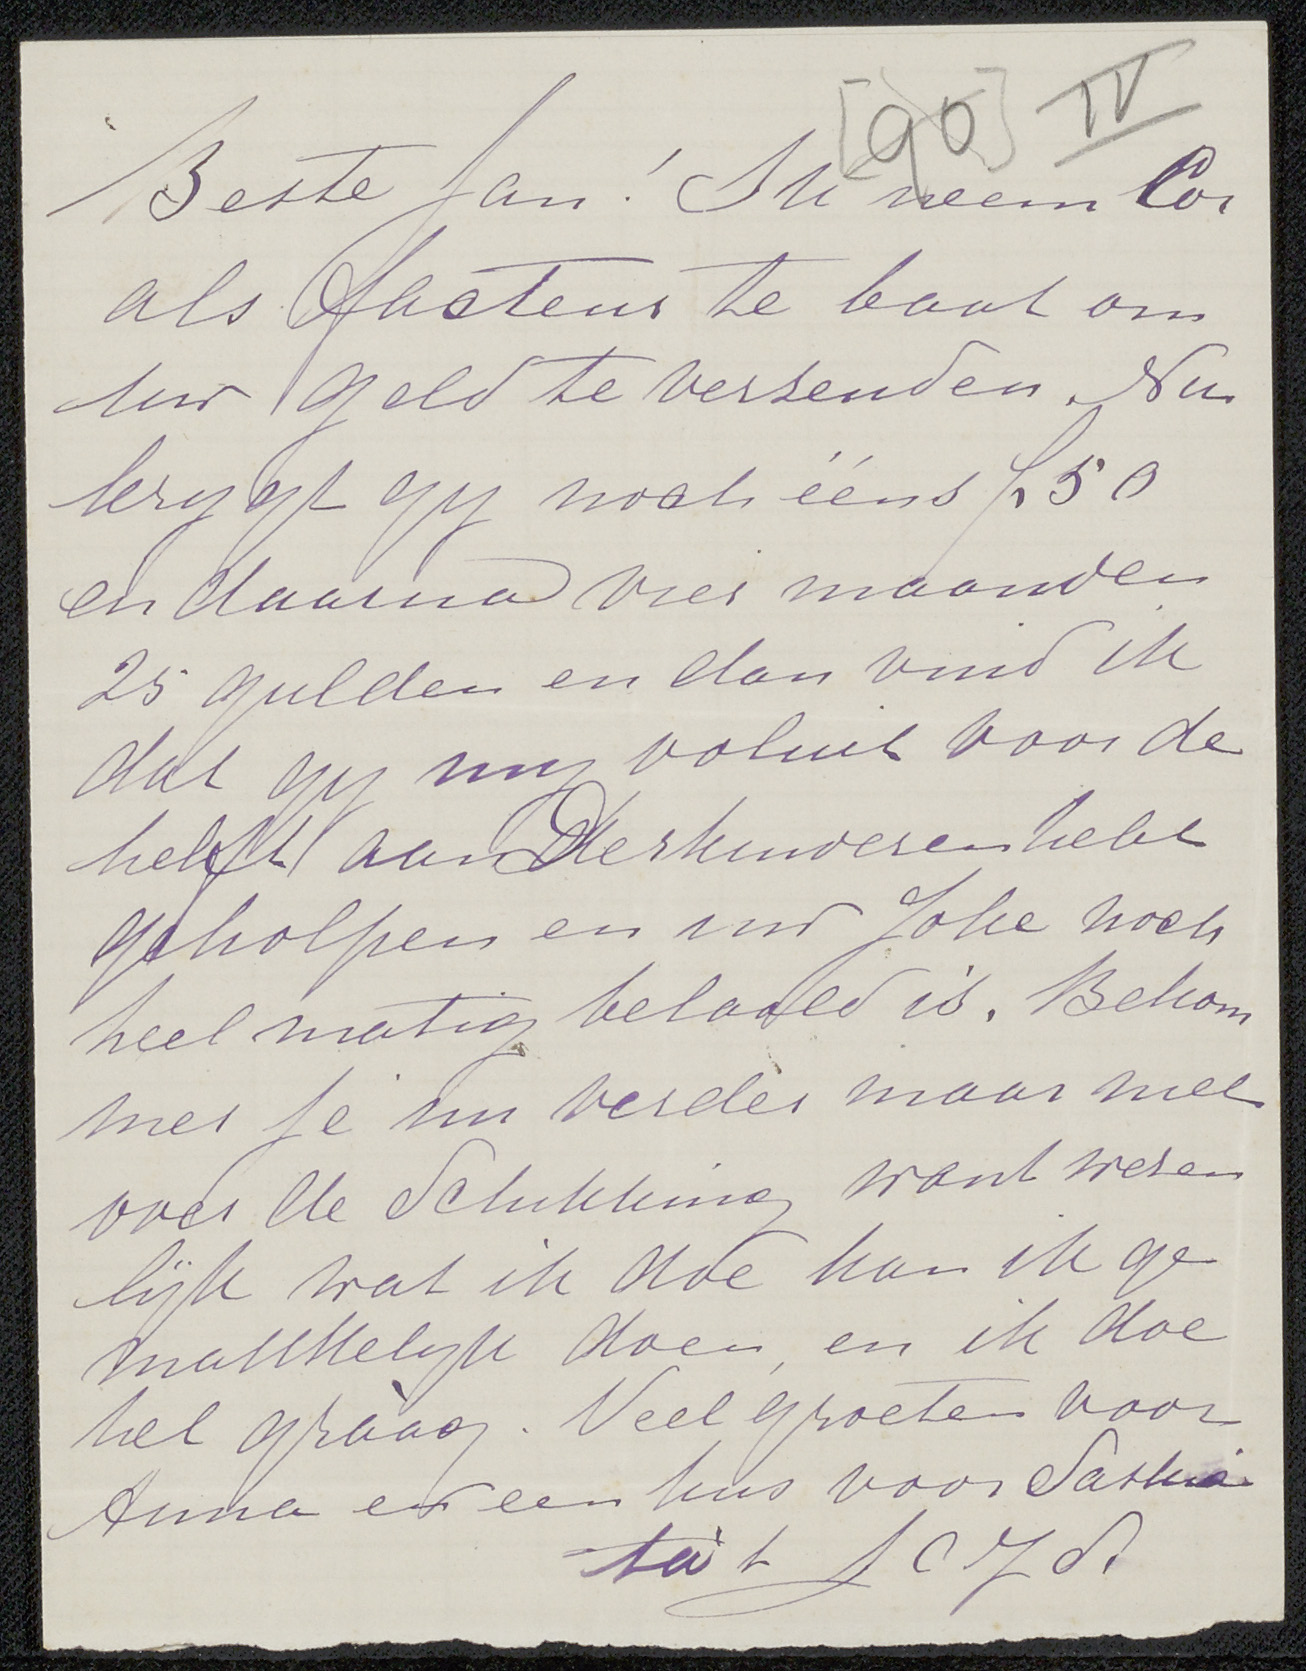 [90] IV
Beste Jan! Ik neem Cor
als facteur te baat om
uw geld te versenden. Nu
krygt gy noch ééns f. 50
en daarna vier maanden
25 gulden en dan vind ik
dat gy my voluit voor de
helft aan Derkinderen hebt
geholpen en uw Joke noch
heel matig betaald is. Bekom
mer je nu verder maar niet
over de Schikking want wesen
lijk wat ik doe kan ik ge
makkelyk doen, en ik doe
het graag. Veel groeten voor
Anna en een kus voor Saskia